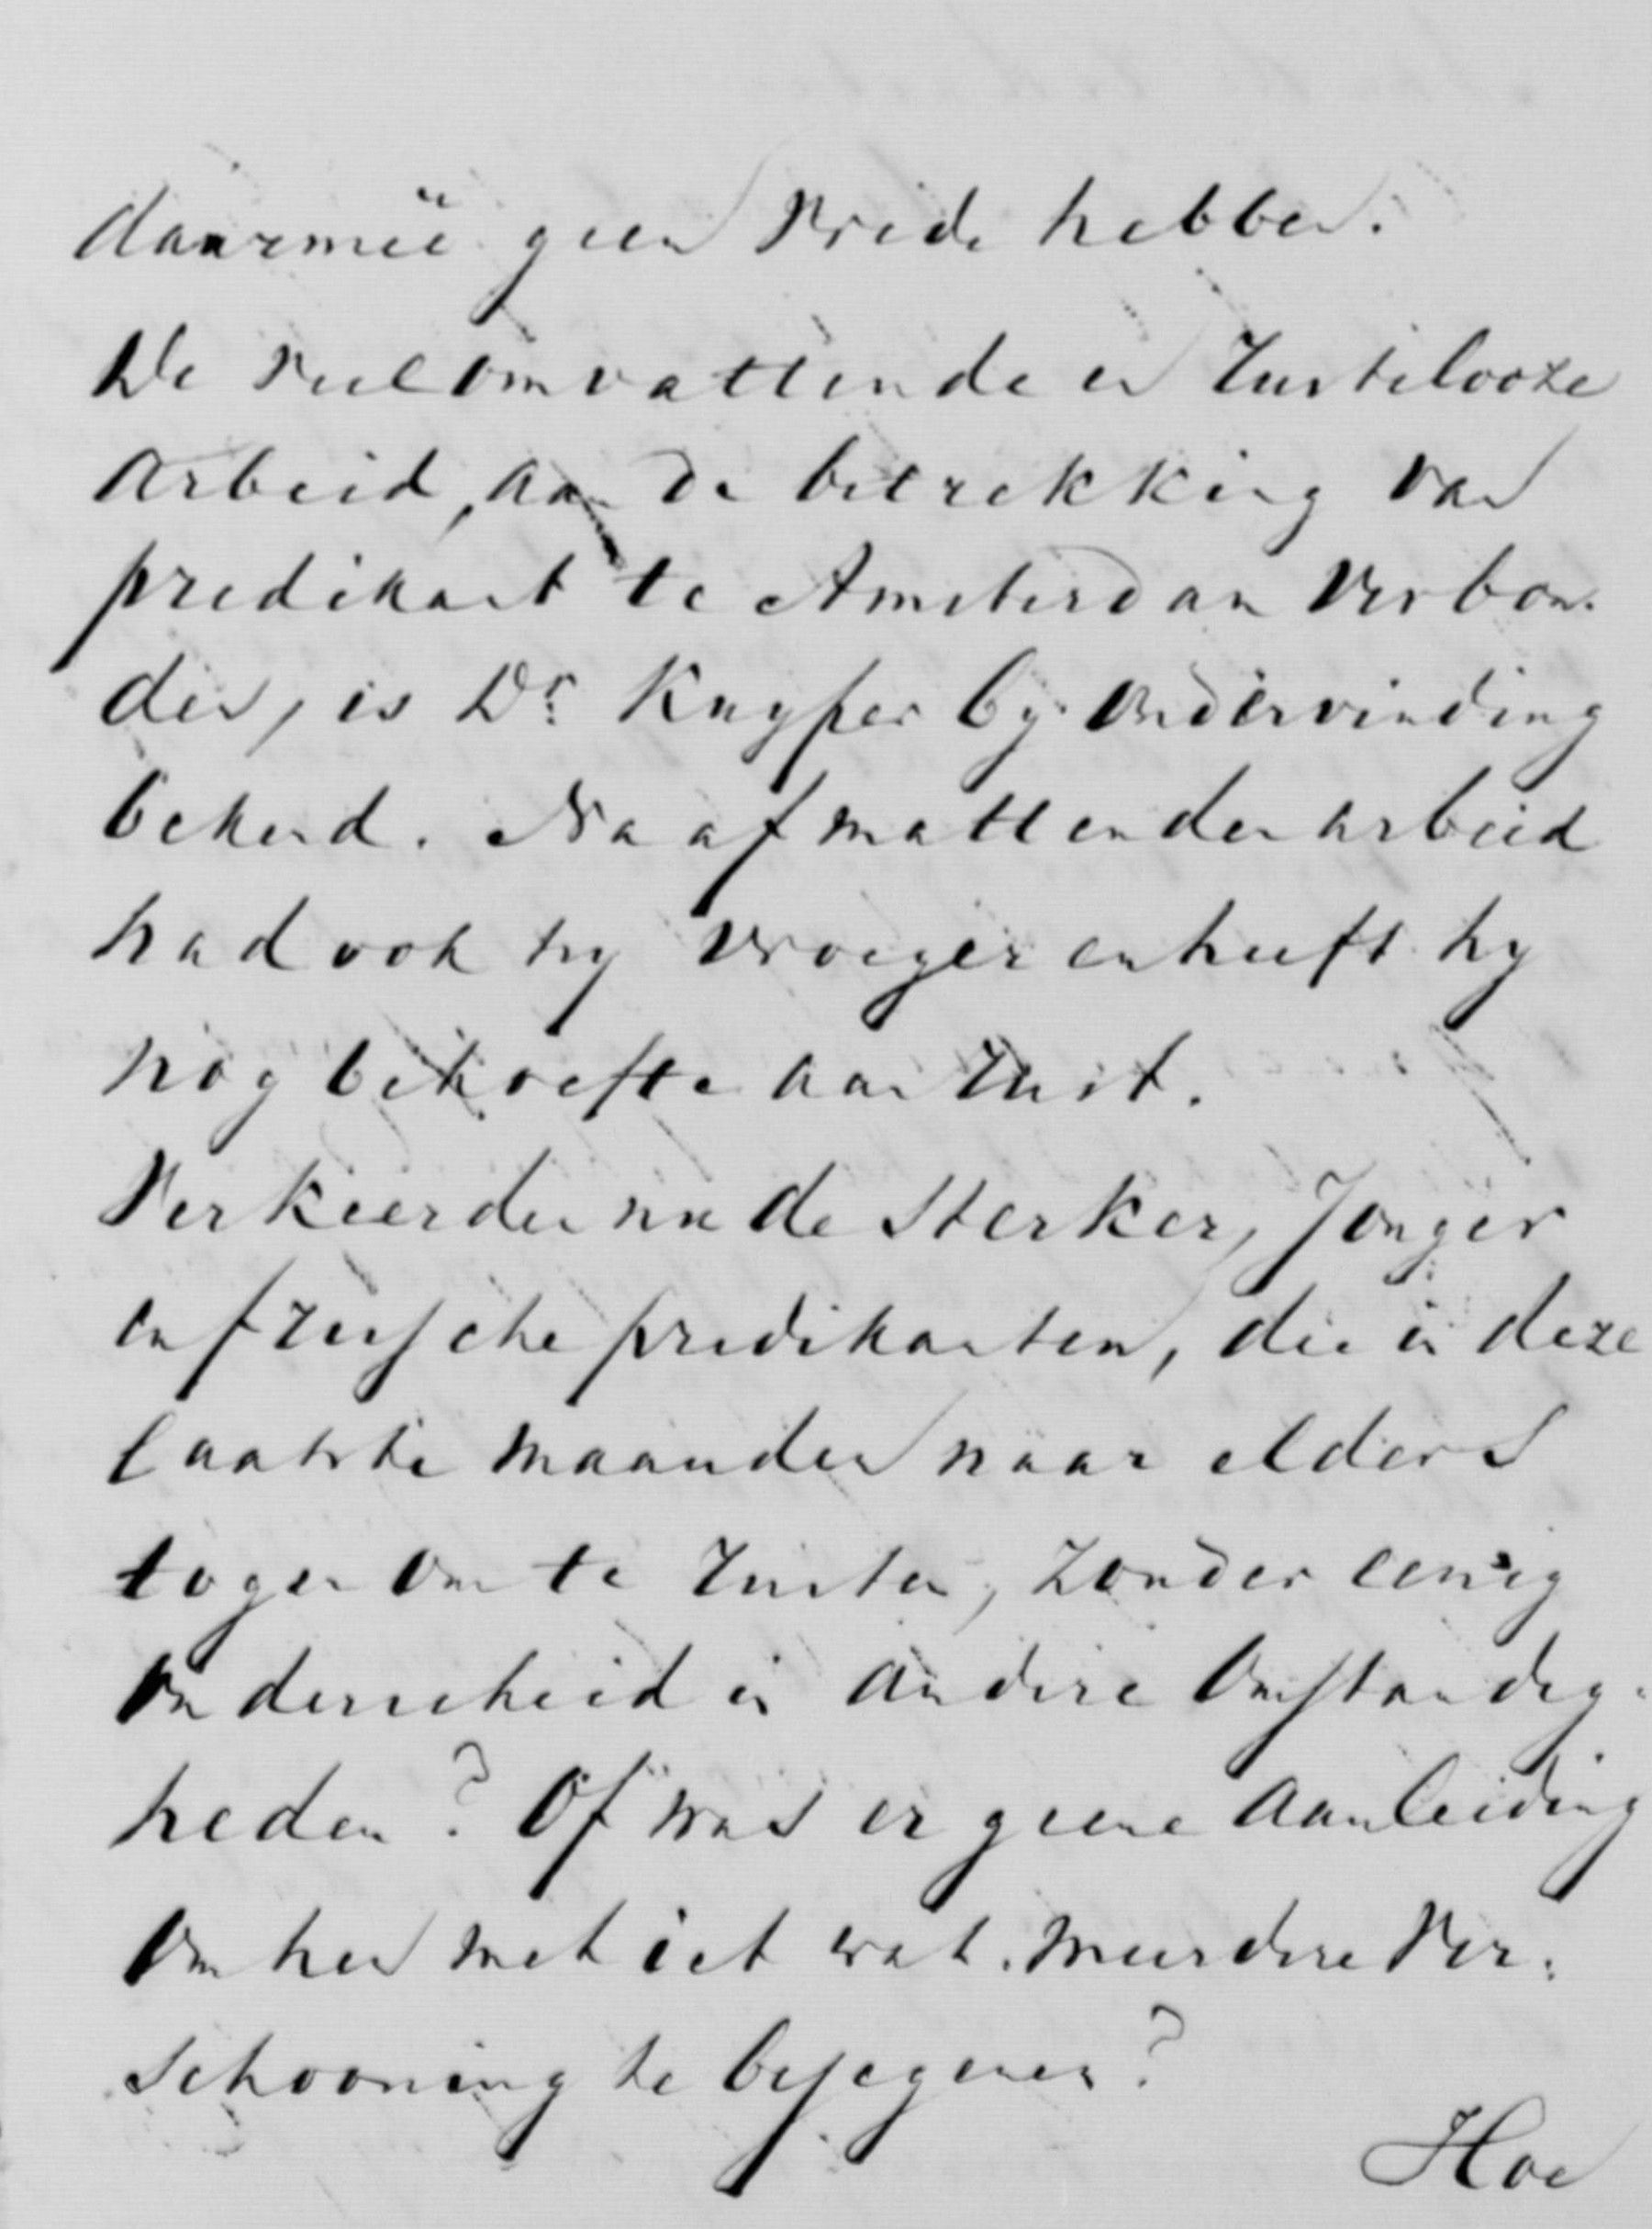 daarmeê geen vrede hebben.
De veelomvattende en rustelooze
arbeid, aan de betrekking van
predikant te Amsterdam verbon-
den, is Dr. Kuyper by ondervinding
bekend. Na afmattenden arbeid
had ook hy vroeger en heeft hy
nog behoefte aan rust.
Verkeerden nu de sterker, jonger
en frissche predikanten, die in deze
laatste maanden naar elders
togen om te rusten, zonder eenig
onderscheid in andere omstandig-
heden? Of was er geene aanleiding
om hen met iet wat meerdere ver-
schooning te bejegenen?
Hoe